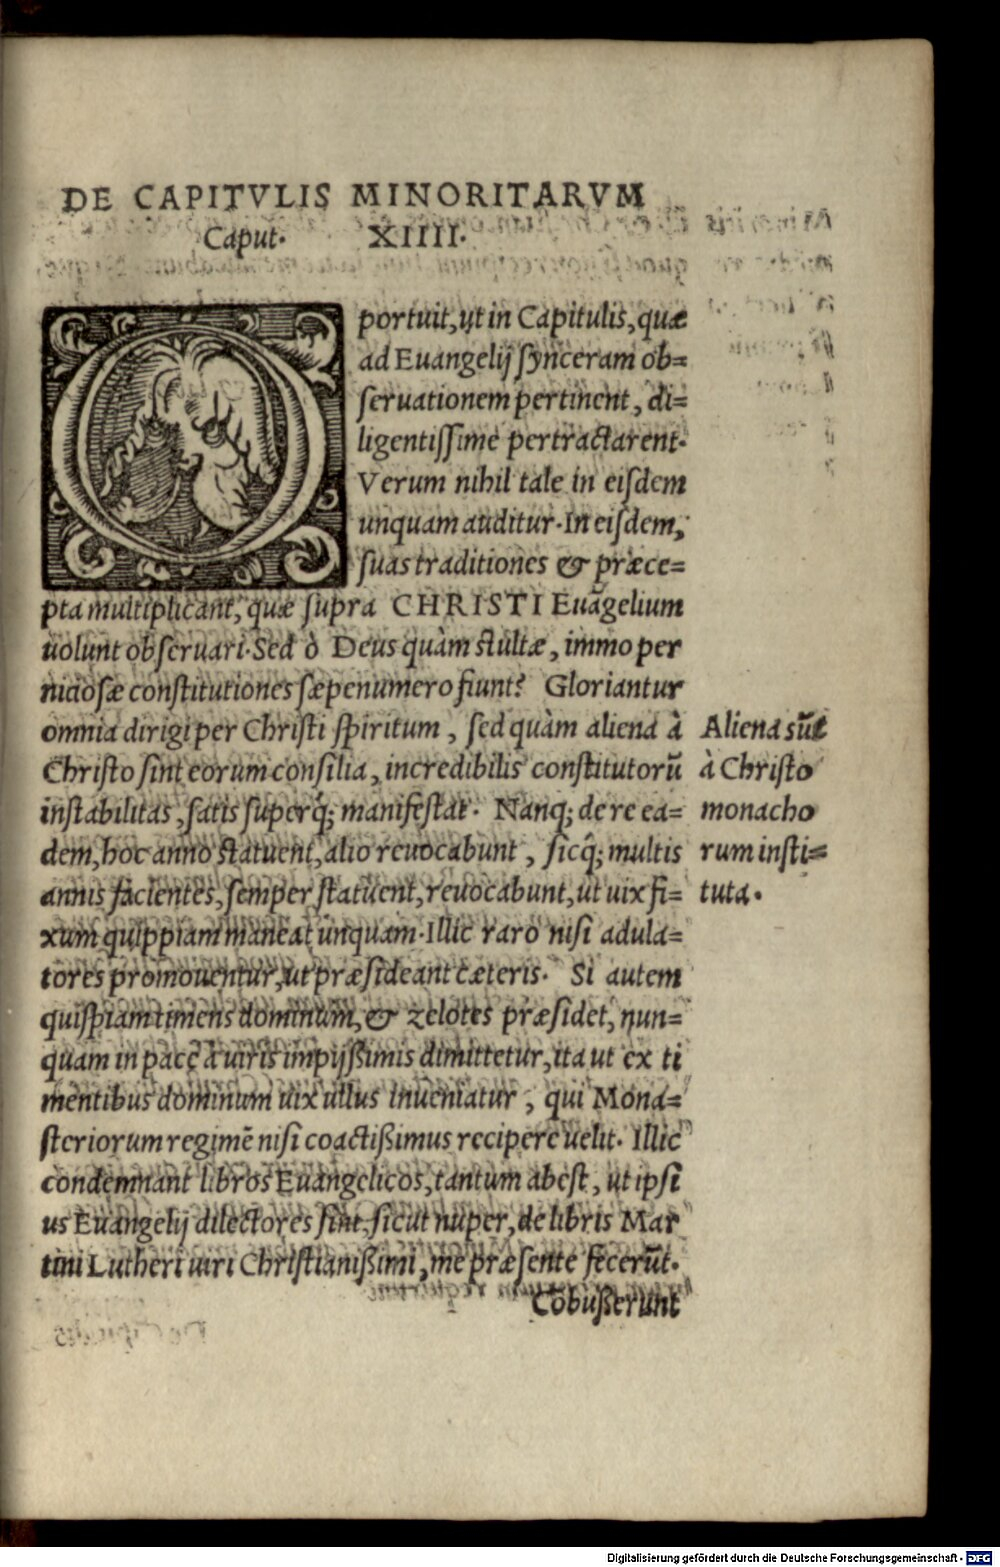 DE CAPITVLIS MINORITARVM
Caput. XIIII.
Oportuit, ut in Capitulis, quæ
ad Euangelij synceram ob=
seruationem pertinent, di=
ligentissime pertractarent.
Verum nihil tale in eisdem
unquam auditur. In eisdem,
suas traditiones & præce=
pta multiplicant, quæ supra CHRISTI Euāgelium
uolunt obseruari. Sed ò Deus quàm stultæ, immo per
niciosæ constitutiones sæpenumero fiunt? Gloriantur
omnia dirigi per Christi spiritum, sed quàm aliena à
Christo sint eorum consilia, incredibilis constitutorū
instabilitas, satis superq́; manifestat. Nanq; de re ea=
dem, hoc anno statuent, alio reuocabunt, sicq́; multis
annis facientes, semper statuent, reuocabunt, ut uix fi=
xum quippiam maneat unquam. Illic raro nisi adula=
tores promouentur, ut præsideant cæteris. Si autem
quispiam timens dominum, & zelotes præsidet, nun=
quam in pace à uiris impijssimis dimittetur, ita ut ex ti
mentibus dominum uix ullus inueniatur, qui Mona=
steriorum regimē nisi coactissimus recipere uelit. Illic
condemnant libros Euangelicos, tantum abest, ut ipsi
us Euangelij dilectores sint, sicut nuper, de libris Mar
tini Lutheri uiri Christianissimi, me præsente fecerūt.
Cōbusserunt
Aliena sūt
à Christo
monacho
rum insti=
tuta.
Digitalisierung gefördert durch die Deutsche Forschungsgemeinschaft - DFG